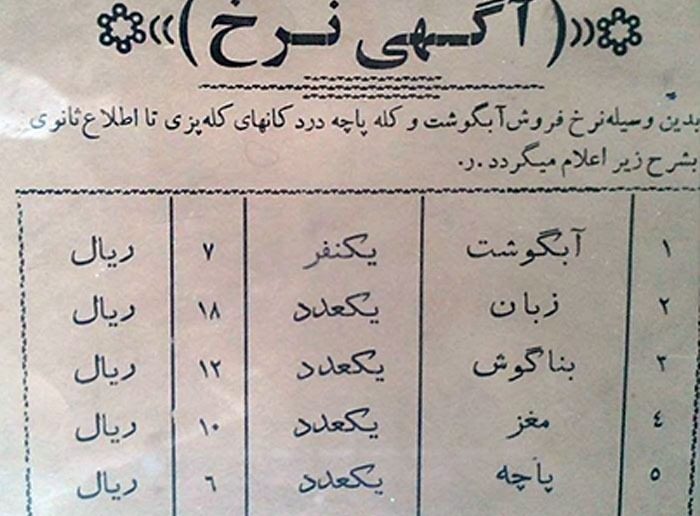 (آگهی نرخ)
بدین وسیله نرخ فروش آبگوشت و کله پاچه درد کانهای کله‌پزی تا اطلاع ثانوی
بشرح زیر اعلام میگردد.ر.
۱ آبگوشت یکنفر ۷ ریال
۲ زبان یکعدد ۱۸ ریال
۳ بناگوش یکعدد ۱۲ ریال
۴ مغز یکعدد ۱۰ ریال
۵ پاچه یکعدد ۶ ریال